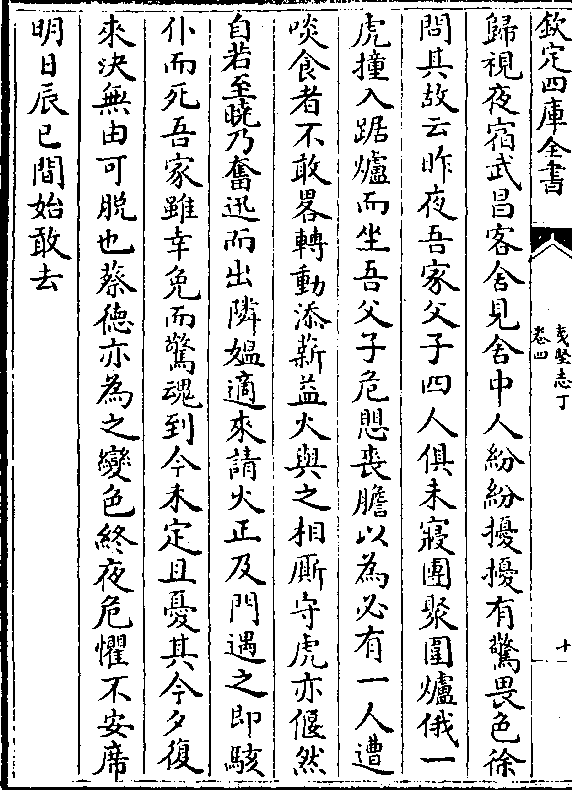 欽定四庫全書
夷堅志丁
卷四
十一
歸視夜宿武昌客舍見舍中人紛紛擾擾有驚畏色徐
問其故云昨夜吾家父子四人俱未寢團聚圍爐俄一
虎撞入踞爐而坐吾父子危愳喪膽以為必有一人遭
啖食者不敢畧轉動添薪益火與之相廝守虎亦偃然
自若至曉乃奮迅而出隣媪適來請火正及門遇之即駭
仆而死吾家雖幸免而驚魂到今未定且憂其今夕復
來決無由可脱也蔡德亦為之變色終夜危懼不安席
明日辰巳間始敢去